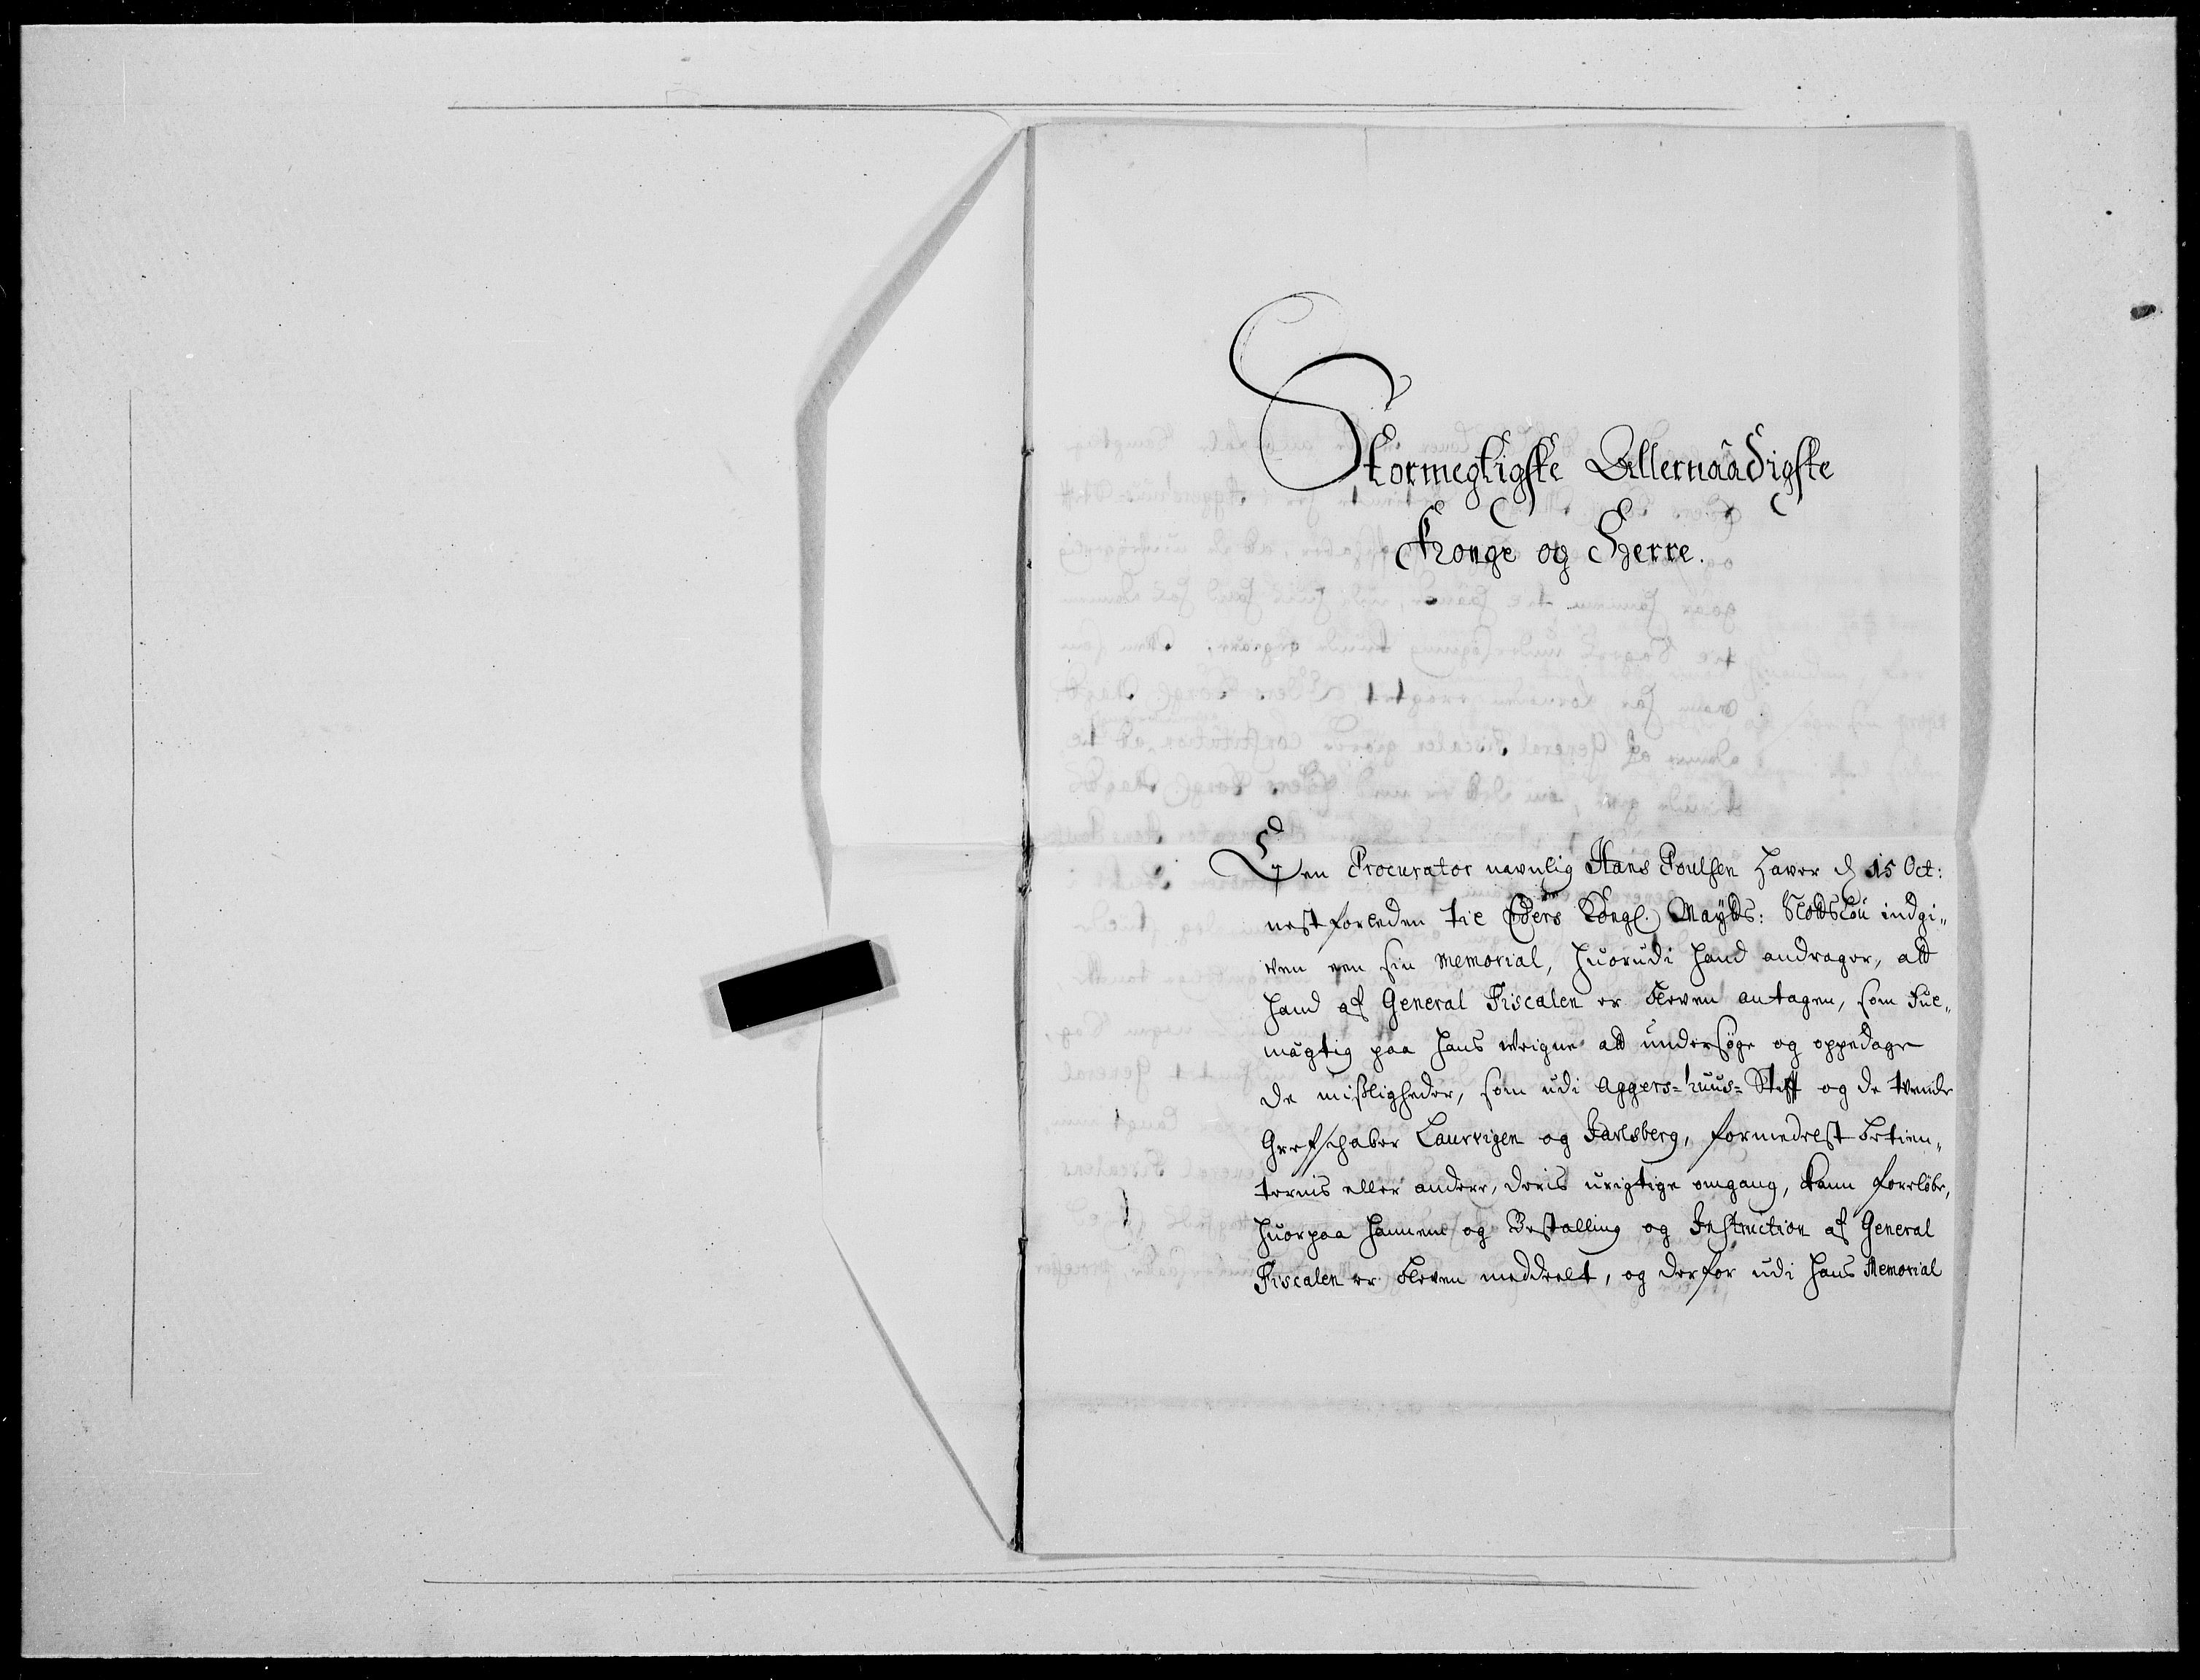 Stormegtigste Allernaadigste
Konge og Herre.
Een Procurator navnlig Hans Poulsen haver d 15 Oct:
nestforleden til Eders Kongl. Mayts: Slotslou indgi„
ven een sin Memorial, huorudi hand andrager, att
hand af General Fiscalen er bleven antagen, som Ful„
mägtig paa hans veigne att undersöge og oppedage
de mißligheder, som udi Aggers=huus= Stift og de tvende
Grefschaber Laurvigen og Jarlsberg, formedelst betien„
ternis eller andere, deris urigtige omgang, kann foreløbe,
huorpaa hannem og Bestalling og Instruction af General
Fiscalen er bleven meddeelt, og derfor udi hans Memorial